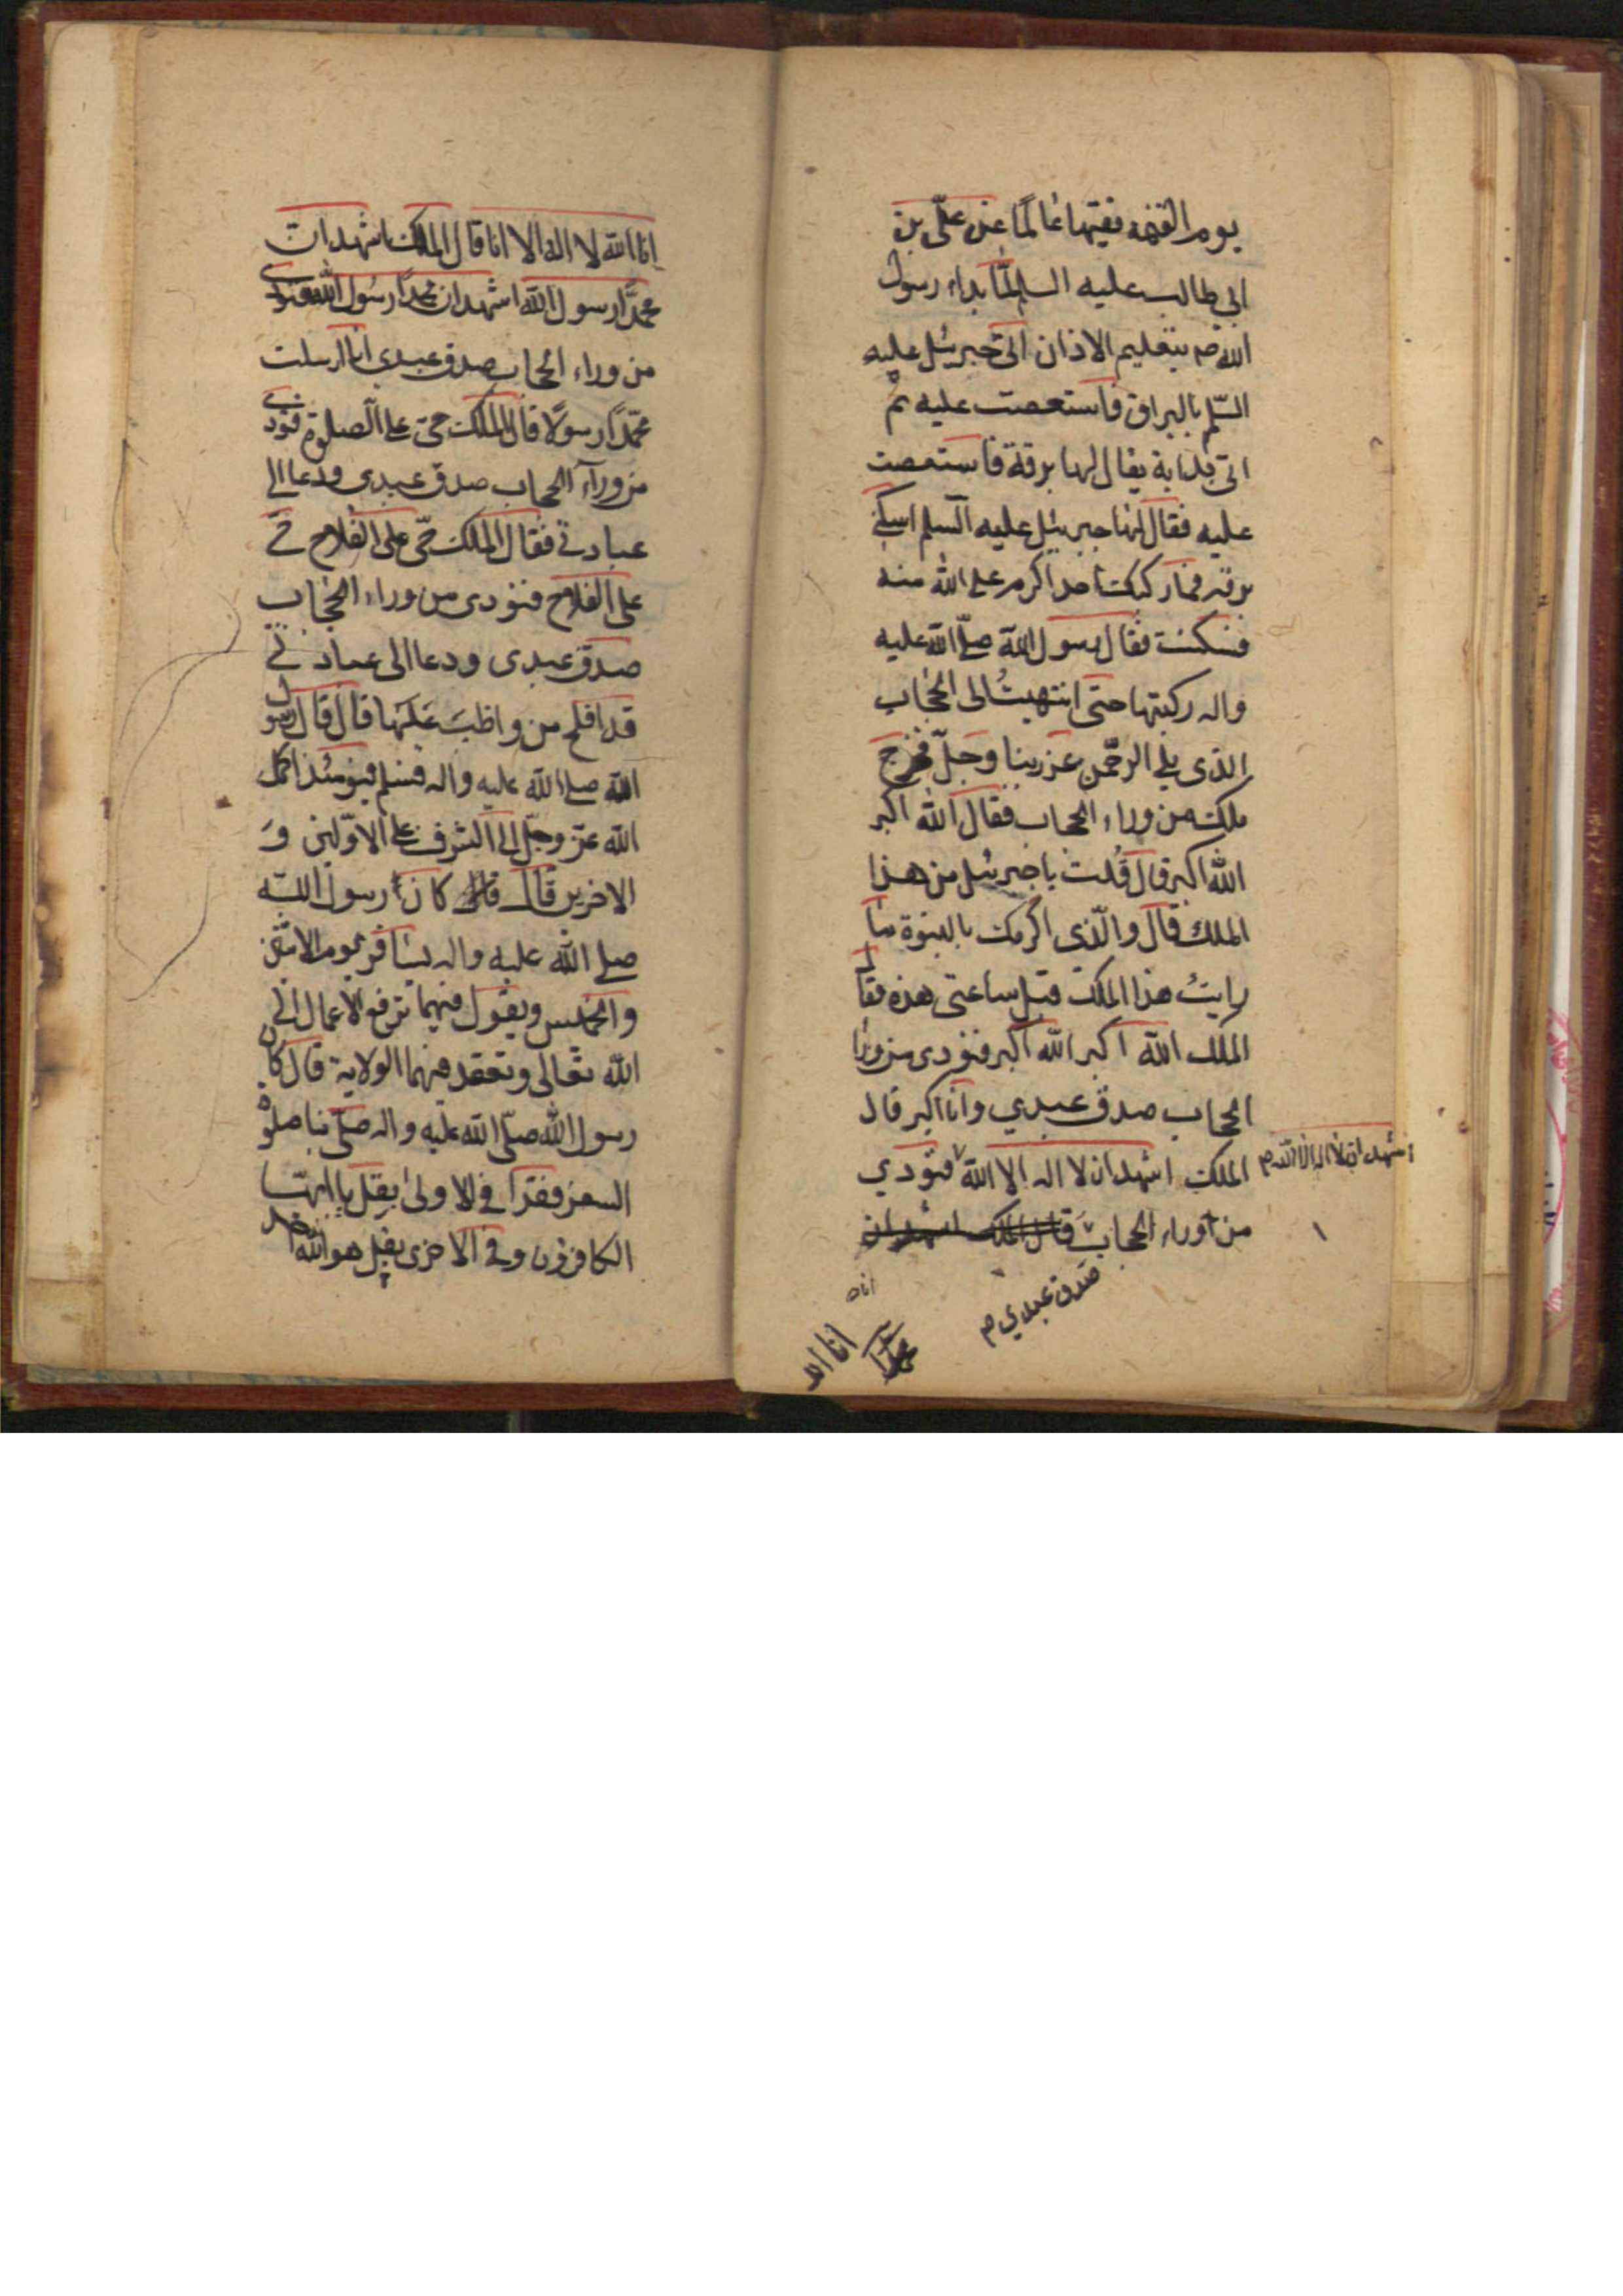 يوم القيمة فقيها عالما عن علّي بن
ابى طالب عليه السلم لمّا بداء رسول
الله ص بتعليم الاذان اتى جبرئيل عليه
السّلم بالبراق فاستعصت عليه ثم
اتى بدابة يقال لها برقة فاستعصت
عليه فقال لها جبرئيل عليه السلم اسكنى
برقه فما ركبك احد اكرم على الله منه
فسكنت فقال رسول الله صلّى الله عليه
واله ركبتها حتى انتهيتُ الى الحجاب
الذى يلى الرحمن عز ربنا وجلّ فخرج
ملك من وراء الحجاب فقال الله اكبر
الله اكبر قال قُلت يا جبرئيل من هذا
الملك قال والّذى اكرمك بالنبوة ما
رايتُ هذا الملك قبل ساعتى هذه فقال
الملك الله اكبر الله اكبر فنودى من وراء
الحجاب صدق عبدي وانا اكبر قال
الملك اشهد ان لا اله الا الله فنودي
اشهد ان لا اله الا الله م
من وراء الحجاب قال الملك اشهد ان
صدق عبدي م
انا الله
انا الله لا اله الا انا قال الملك اشهد ان
محمدًا رسول الله اشهد ان محمدًا رسول الله فنودى
من وراء الحجاب صدق عبدى انا ارسلت
محمّدًا رسولًا قال الملك حىّ على الصلوة فنودى
من ورآء الحجاب صدق عبدى ودعا الى
عبادتى فقال الملك حىّ على الفلاح حىّ
على الفلاح فنودى من وراء الحجاب
صدق عبدى ودعا الى عبادتى
قد افلح من واظبَ عَلَيها قال قال رسول
الله صلى الله عليه واله فيومئذ اكمل
الله عزّ وجلّ لى الشرف على الاوّلين وَ
الاخرين قال كان رسول الله
صلى الله عليه واله يسافر يوم الاثنين
والخميس ويقول فيهما ترفع الاعمال الى
الله تعالى وتعقد فيهما الولاية قال كان
رسول الله صلّى الله عليه واله صلّى بنا صلوة
السفر فقرا فى الاولى بقل يا ايها
الكافرون وفى الاخرى بقل هو الله احد